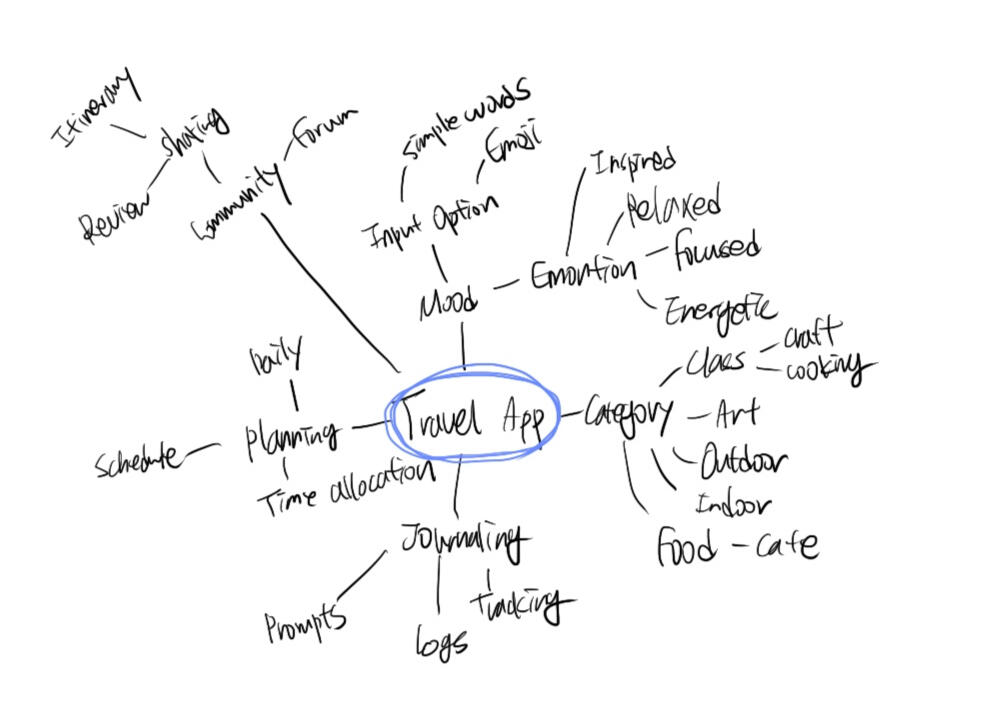 Itinerary
Sharing
Review
Community
Forum
Simple words
Emoji
Input Option
Mood
Emortion
Inspired
Relaxed
Focused
Energetic
Travel App
Category
Class
craft
cooking
Art
Outdoor
Indoor
Food - cafe
Daily
Planning
Schedule
Time allocation
Journaling
Prompts
Logs
Tracking